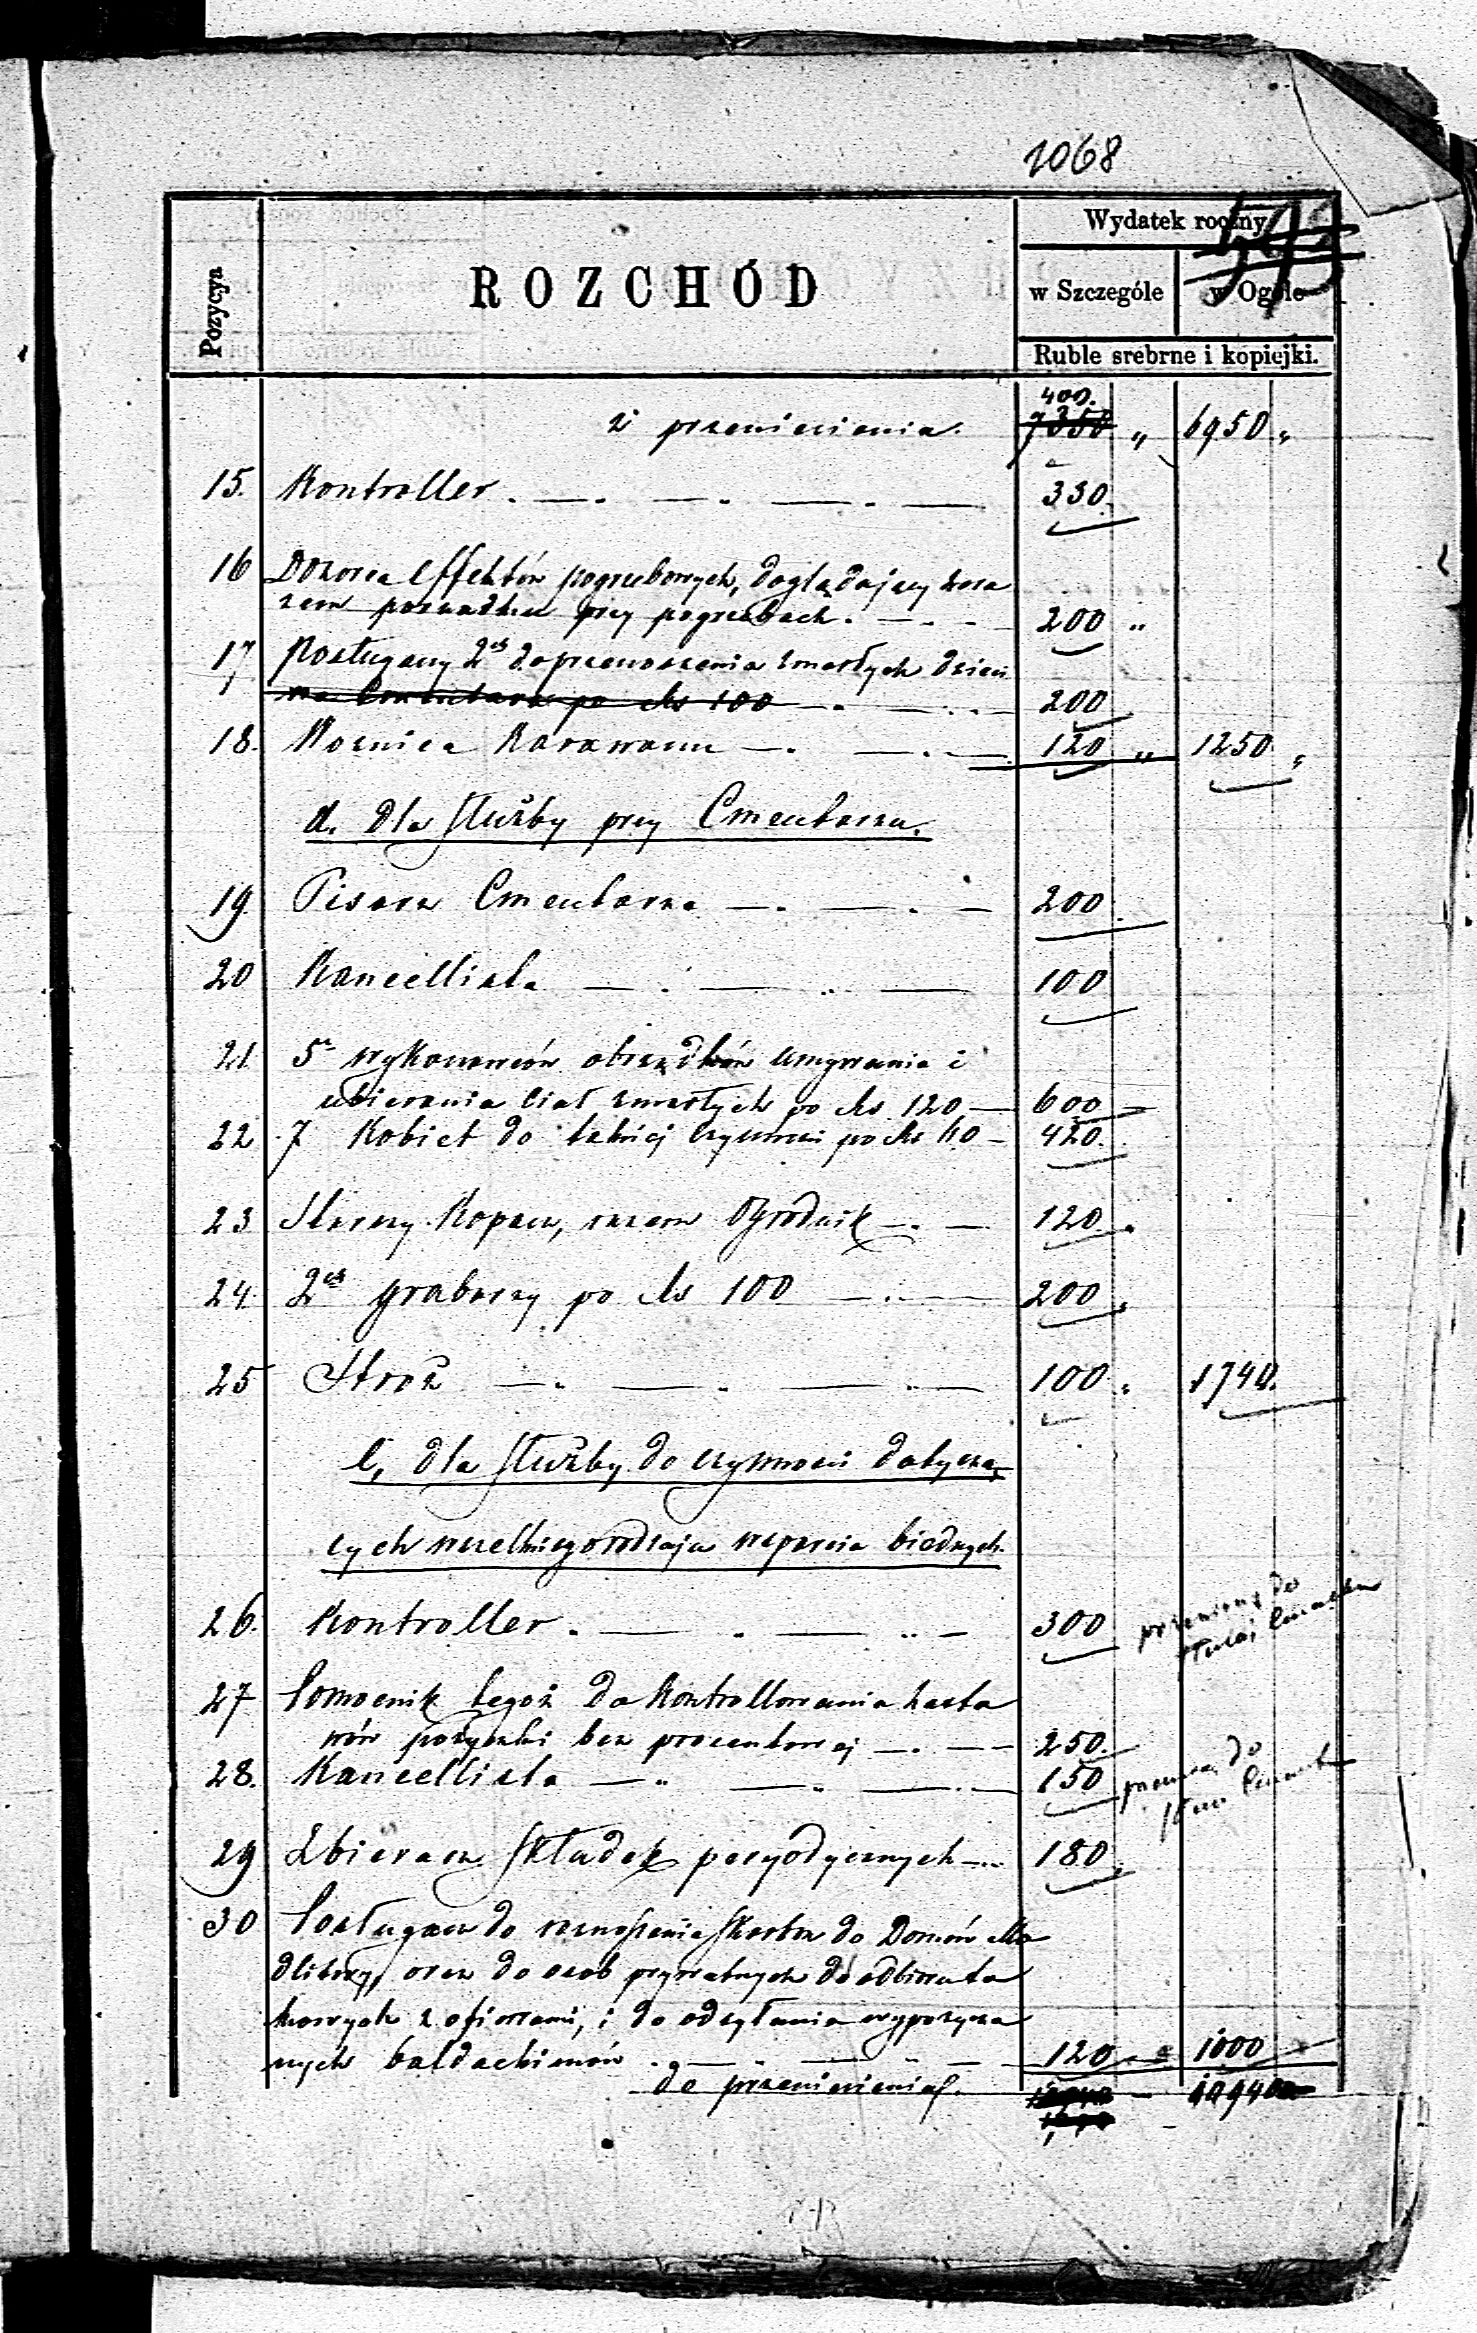 1068
Pozycya
ROZCHÓD
Wydatek roczny
w Szczególe
w Ogóle
Ruble srebrne i kopiejki.
400.
z przeniesienia. 7350 „ 6950 „
15. Kontroller . — . — . — . — 330.
16 Dozorca effektów pogrzebowych, doglądający zara
zem porządku przy pogrzebach . — . — 200 „
17 Posługaczy 2ch do przenoszenia zmarłych dzieci
na Cmentarz po Rs 100 — . — . — 200
18. Woźnica Karawanu — . — . — 120 „ 1250 „
d. dla Służby przy Cmentarzu.
19. Pisarz Cmentarza — . — . — 200
20 Kancellista — . — .. — 100
21. 5u wykonawców obrządków umywania i
ubierania ciał zmarłych po Rs 120 — 600 —
22 7 Kobiet do takiej czynności po Rs 60 — 420.
23 Starszy Kopacz, razem Ogrodnik — . — 120 „
24. 2ch grabarzy po Rs 100 — .. — 200 „
25 Stróż — . — . — .. — 100 „ 1740.
e, dla Służby do czynności dotyczą,
cych wszelkiego rodzaju wsparcia biednych.
26. Kontroller . — . — .. — 300 do
27 Pomocnik tegoż do Kontrollowania zasta
wów pożyczki bez procentowej — . — 250.
28. Kancellista — .. — .. — . — 150 do
29 Zbieracz Składek peryodycznych — .. 180 „
30 Posługacz do roznoszenia Skarbon do Domów Mo
dlitwy, oraz do osób prywatnych do odbierania
z ofiarami, i do odsyłania wypożycza
nych baldachimów . — .. — .. — 120 — 1000
do przeniesienia. — 10940